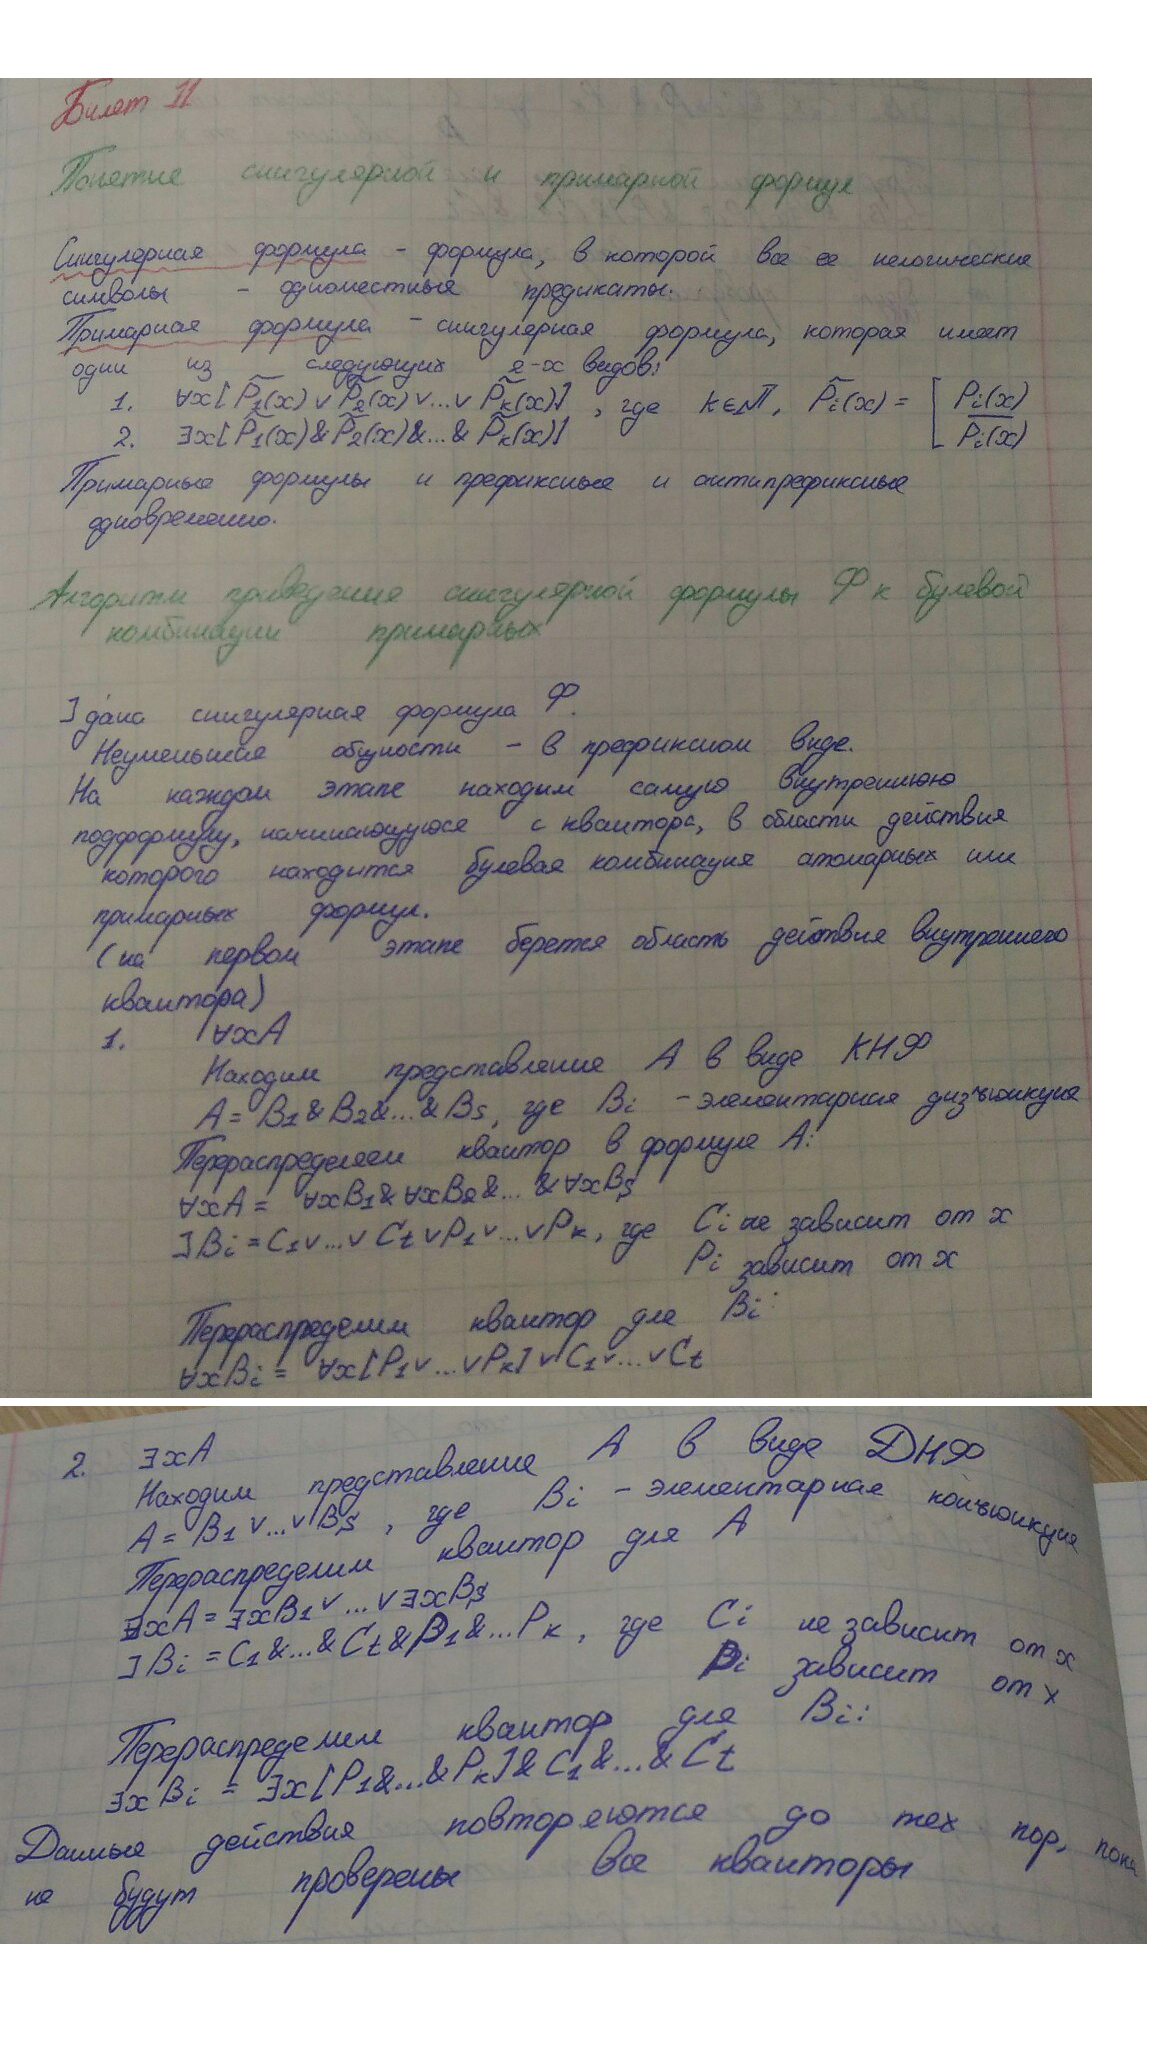 Билет 11
Понятие сингулярной и примарной формул
Сингулярная формула - формула, в которой все ее нелогические
символы - одноместные предикаты.
Примарная формула - сингулярная формула, которая имеет
один из следующих 2-х видов:
1. ∀x[P̃₁(x) ∨ P̃₂(x) ∨ ... ∨ P̃ₖ(x)], где k∈ℕ, P̃ᵢ(x) = [ Pᵢ(x)
2. ∃x[P̃₁(x) & P̃₂(x) & ... & P̃ₖ(x)] P̅ᵢ(x)
Примарные формулы и префиксные и антипрефиксные
одновременно.
Алгоритм приведения сингулярной формулы Ф к булевой
комбинации примарных
] дана сингулярная формула Ф.
Неуменьшая общности - в префиксном виде.
На каждом этапе находим самую внутреннюю
подформулу, начинающуюся с квантора, в области действия
которого находится булевая комбинация атомарных или
примарных формул.
(на первом этапе берется область действия внутреннего
квантора)
1. ∀xA
Находим представление A в виде КНФ
A = B₁ & B₂ & ... & Bs, где Bi - элементарная дизъюнкция
Перераспределяем квантор в формуле A:
∀xA = ∀xB₁ & ∀xB₂ & ... & ∀xBs
] Bi = C₁ ∨ ... ∨ Ct ∨ P₁ ∨ ... ∨ Pk, где Ci не зависит от x
Pi зависит от x
Перераспределим квантор для Bi:
∀xBi = ∀x[P₁ ∨ ... ∨ Pk] ∨ C₁ ∨ ... ∨ Ct
2. ∃xA
Находим представление A в виде ДНФ
A = B₁ ∨ ... ∨ Bs, где Bi - элементарная конъюнкция
Перераспределим квантор для A
∃xA = ∃xB₁ ∨ ... ∨ ∃xBs
] Bi = C₁ & ... & Ct & P₁ & ... Pk, где Ci не зависит от x
Pi зависит от x
Перераспределим квантор для Bi:
∃xBi = ∃x[P₁ & ... & Pk] & C₁ & ... & Ct
Данные действия повторяются до тех пор, пока
не будут проверены все кванторы